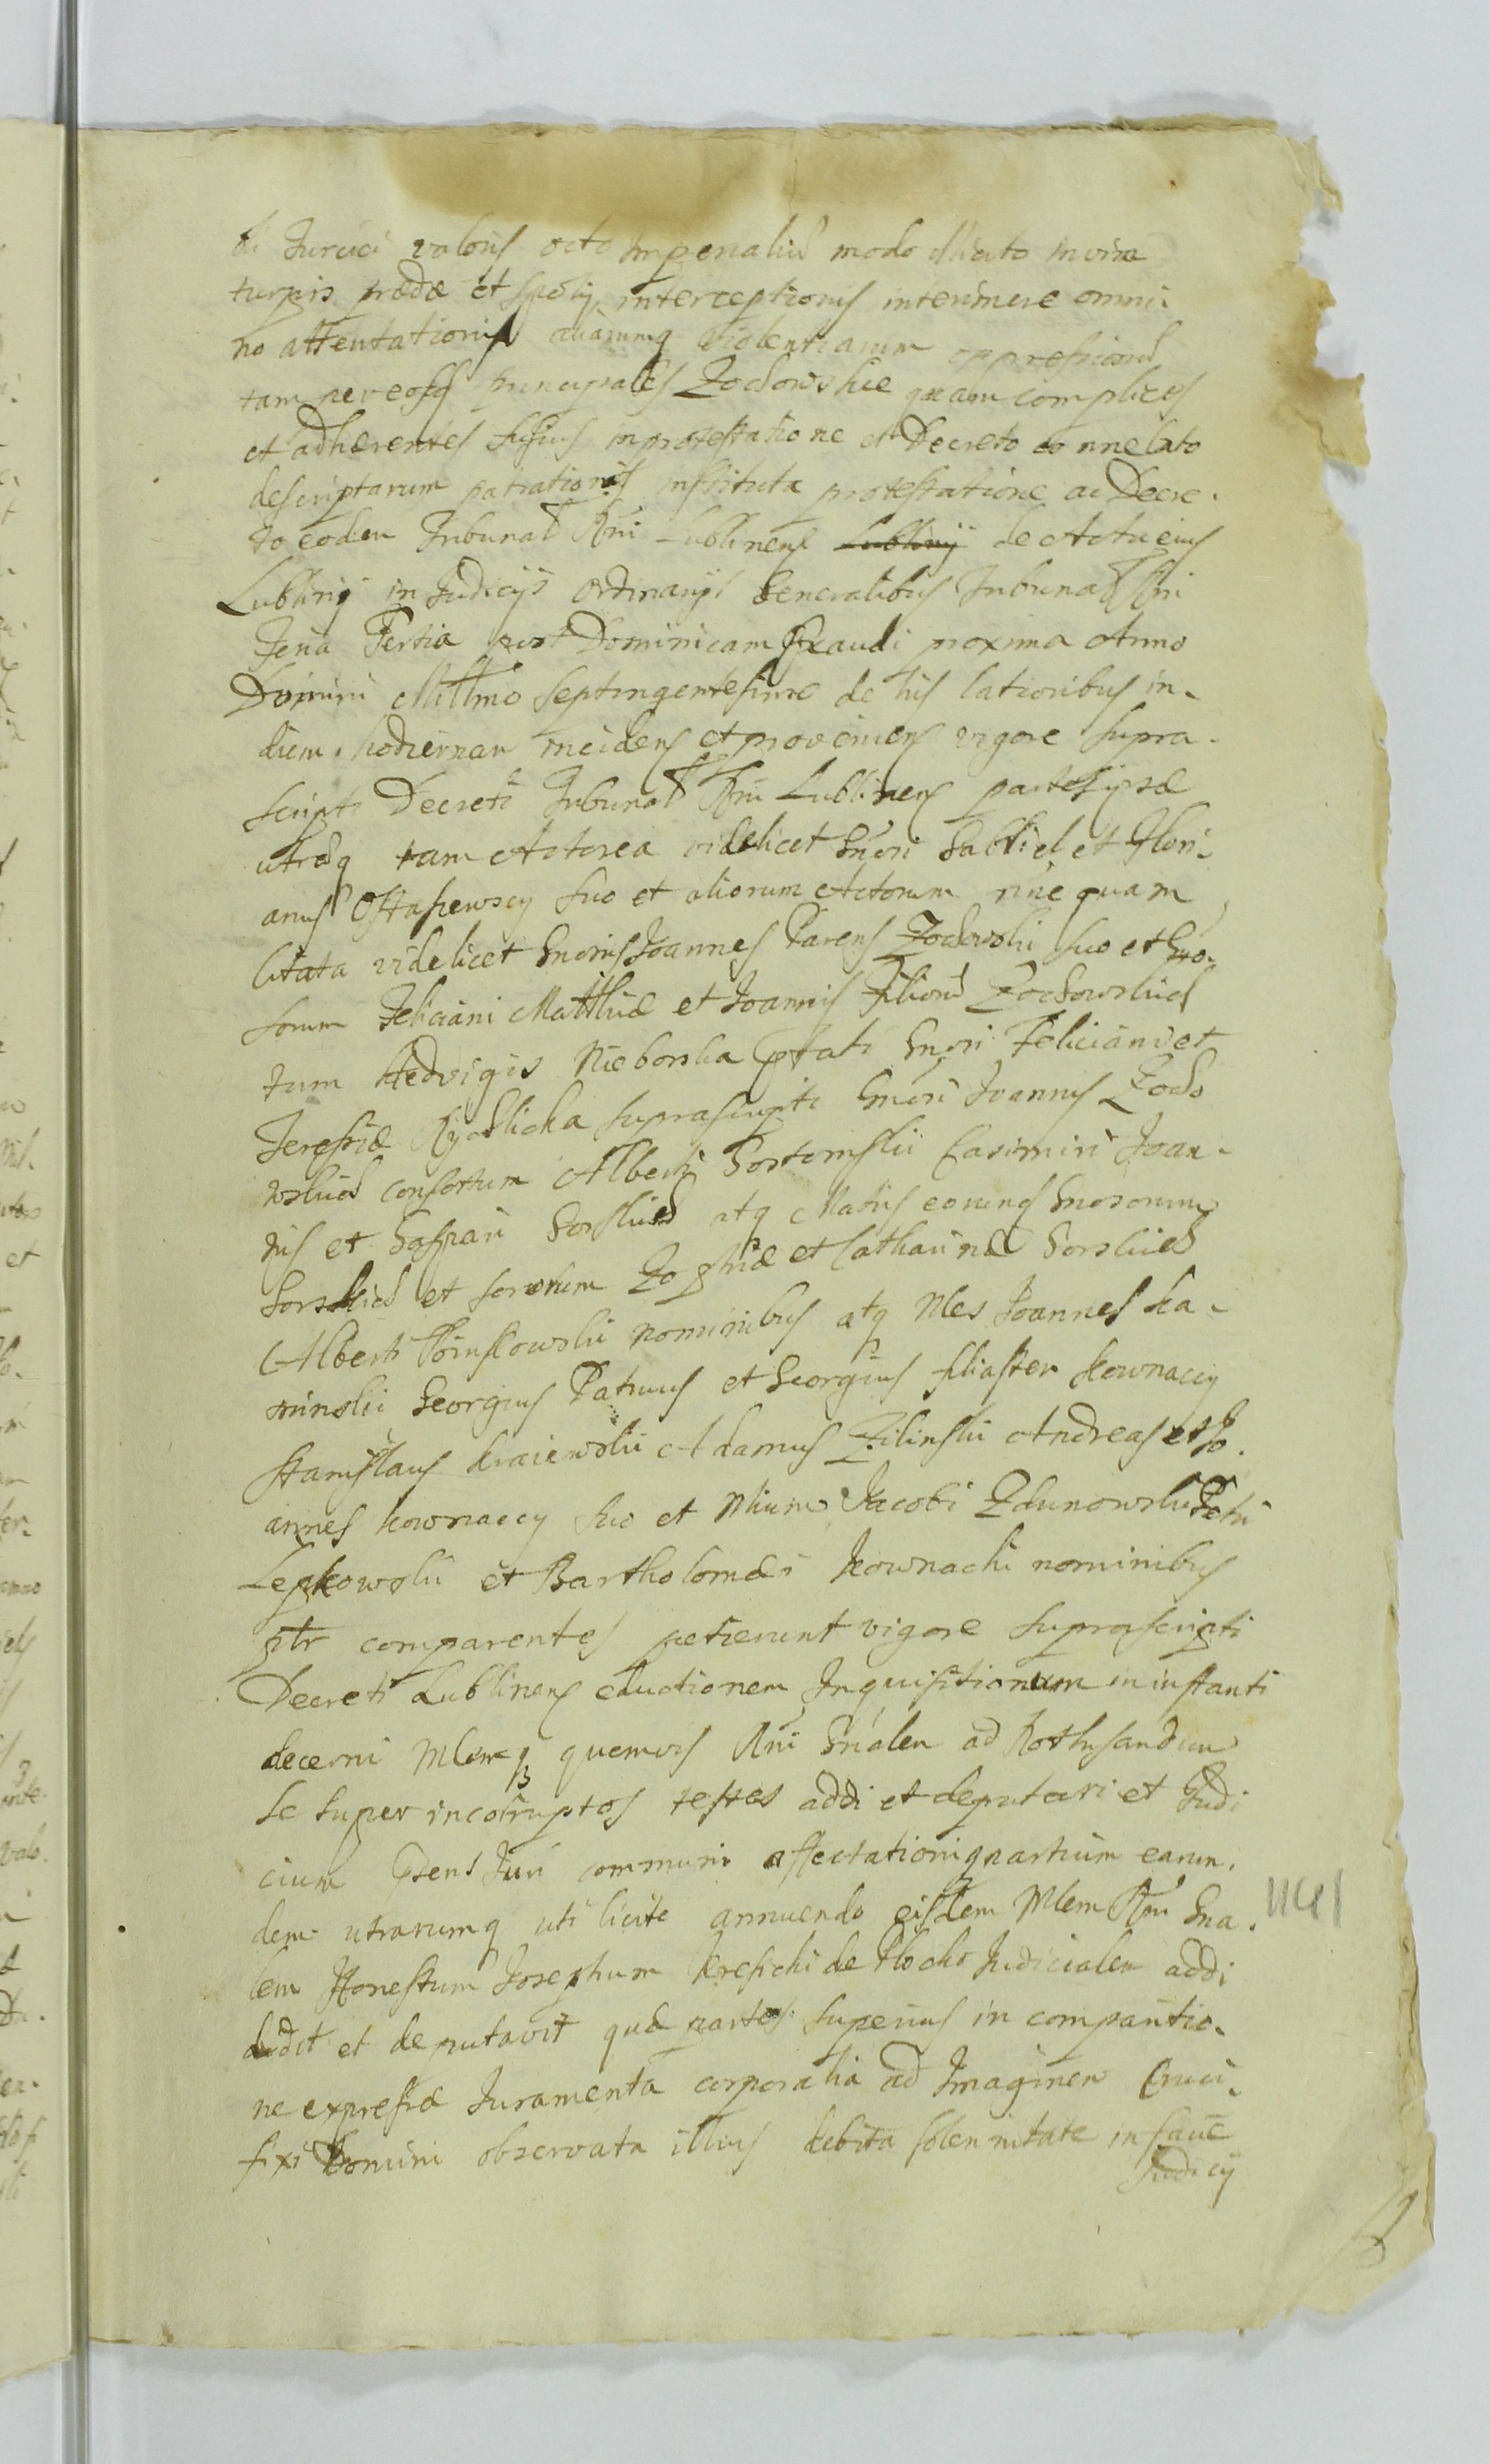 ti Turcici valoris octo Imperialiū modo illicito in vim
turpis prædæ et spolij interceptionis interimere omni-
no attentationis aliarumq violentiarum oppressionū
tam per eosd principales Zochowskie quam complices
et adhærentes fusius in protestatione et Decreto connelato
descriptarum patrationis instituta protestatione ac Decre-
to eodem Tribunal Rni Lublinens Lublinij de Actu eius
Lublinij in Judicijs Ordinarijs Generalibus Tribunal Rni
Feria Tertia post Dominicam Exaudi proxima Anno
Domini Millmo Septingentesimo de his lationibus in-
diem hodiernam incidens et proveniens vigore supra-
scripti Decreti Tribunal Rni Lublinens partes ipsæ
utræq tam Actorea videlicet Gnosi Gabriel et Flori-
anus Ostaszewscy suo et aliorum Actorum nīne quam
Citata videlicet Gnosus Joannes Parens Zochowski suo et Gno-
sorum Feliciani Matthiæ et Joannis filiorū Zochowskich
tum Hedvigis Nieborska pfati Gnosi Feliciani et
Teressiæ Rychlicka suprascripti Gnosi Joannis Zocho
wskich consortum Alberti Gostomski Casimiri Joan-
nis et Gaspari Gorskich atq Matris eorund Gnosorum
Gorskich et sororum Zophiæ et Catharinæ Gorskich
Alberti nominibus atq Nles Joannes Ka-
minski Georgius Patruus et Georgius filiaster Kownaccy
Stanislaus Kraiewski Adamus Zilinski Andreas et Jo-
annes Kownaccy suo et Nlium Jacobi Zdunowski Petri
Lepkowski et Bartholomæi Kownacki nominibus
pltr comparentes petierunt vigore suprascripti
Decreti Lublinens eductionem Inquisitionum in instanti
decerni Mlemq quemvis Rni Gnalem ad Rothisandum
se super incorruptos testes addi et deputari et Judi
cium psens Juri communi affectationiq partium earun-
dem utrarumq uti licite annuendo eisdem Mlem Rni Gna-
lem Honestum Josephum Kresicki de Plocko Judicialem addi
didit et deputavit quæ partes superius in comparitio-
ne expressæ Juramenta corporalia ad Imaginem Cruci-
fixi Domini observata illius debita solennitate in facie
Judicij
1141